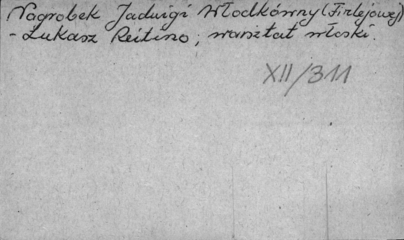 Nagrobek Jadwigi Włodkówny (Firlejowej)
- Łukasz Reitino; warsztat włoski.
XII/311